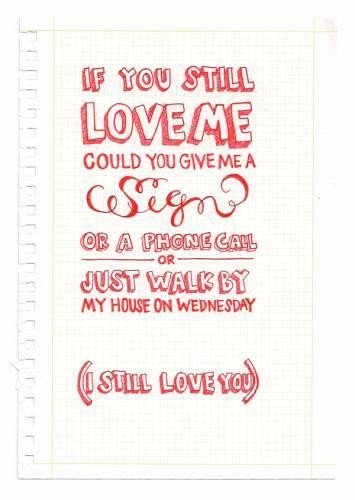 IF YOU STILL
LOVE ME
COULD YOU GIVE ME A
Sign
OR A PHONE CALL
OR
JUST WALK BY
MY HOUSE ON WEDNESDAY
(I STILL LOVE YOU)